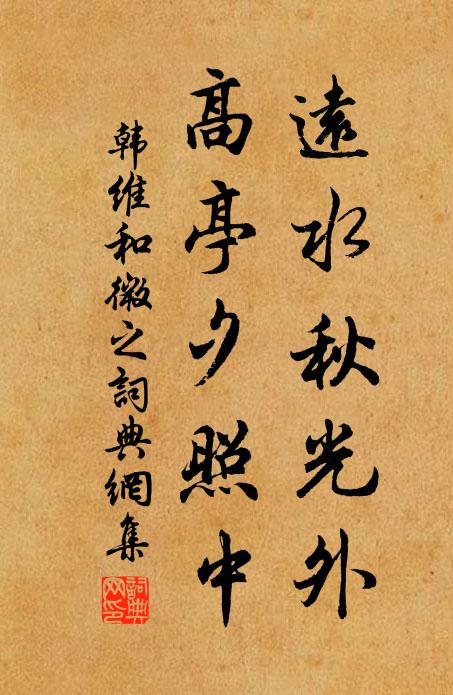 遠水秋光外
高亭夕照中
韩維和微之詞典網集
詞典网印